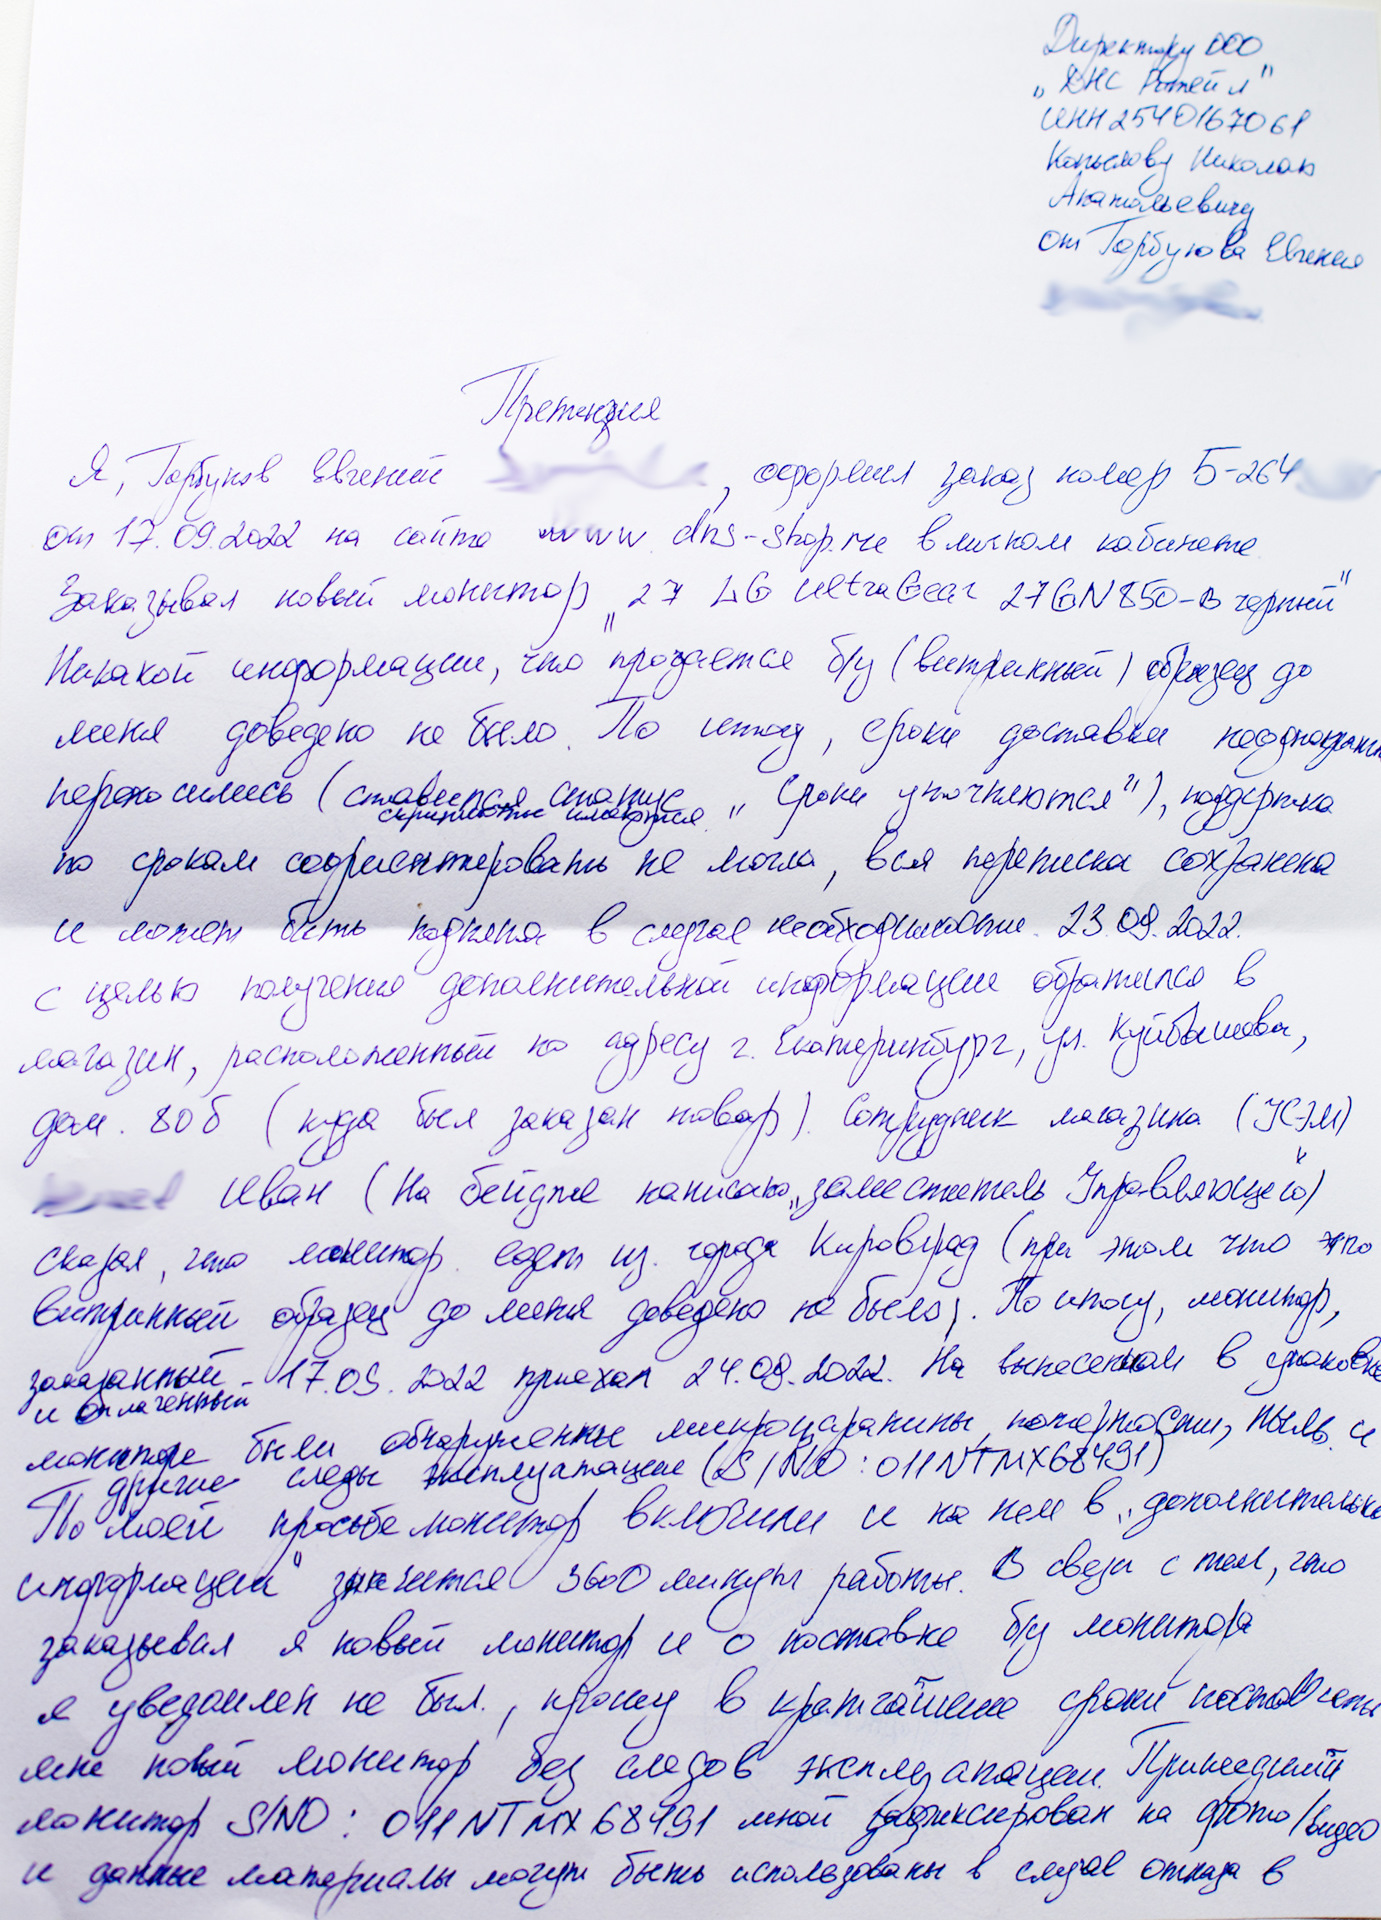 Директору ООО
„ДНС Ритейл"
ИНН 2540167061
Копылову Николаю
Анатольевичу
от Горбунова Евгения
Претензия
Я, Горбунов Евгений , оформил заказ номер Б-264
от 17.09.2022 на сайте www.dns-shop.ru в личном кабинете.
Заказывал новый монитор „27 LG UltraGear 27GN850-B черный"
Никакой информации, что продается б/у (витринный) образец до
меня доведено не было. По итогу, сроки доставки неоднократно
переносились (ставился статус „Сроки уточняются"), поддержка
скриншоты имеются.
по срокам сориентировать не могла, вся переписка сохранена
и может быть поднята в случае необходимости. 23.09.2022.
с целью получения дополнительной информации обратился в
магазин, расположенный по адресу г. Екатеринбург, ул. Куйбышева,
дом. 80б (куда был заказан товар). Сотрудник магазина (УСЭМ)
Иван (На бейдже написано „заместитель Управляющего")
сказал, что монитор едет из города Кировград (при этом что это
витринный образец до меня доведено не было). По итогу, монитор,
заказанный 17.09.2022 приехал 24.09.2022. На вынесенном в упаковке
и оплаченный
мониторе были обнаружены микроцарапины, потертости, пыль и
другие следы эксплуатации (S/NO: 011NTMX68491)
По моей просьбе монитор включили и на нем в „дополнительной
информации" значится 3600 минут работы. В связи с тем, что
заказывал я новый монитор и о поставке б/у монитора
я уведомлен не был, прошу в кратчайшие сроки поставить
мне новый монитор без следов эксплуатации. Пришедший
монитор S/NO: 011NTMX68491 мной зафиксирован на фото/видео
и данные материалы могут быть использованы в случае отказа в